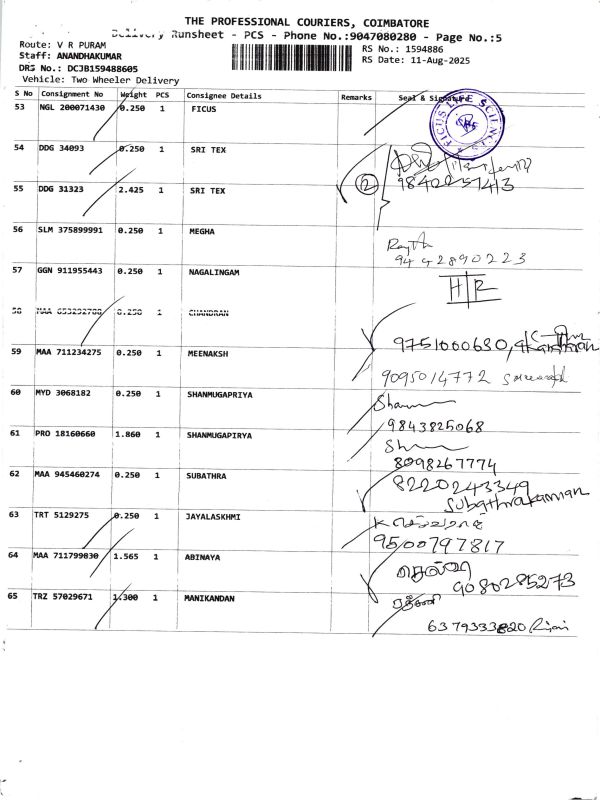 THE PROFESSIONAL COURIERS, COIMBATORE
Delivery Runsheet - PCS - Phone No.:9047080280 - Page No.:5
Route: V R PURAM
Staff: ANANDHAKUMAR
DRS No.: DCJB159488605
Vehicle: Two Wheeler Delivery
RS No.: 1594886
RS Date: 11-Aug-2025
S No Consignment No Weight PCS Consignee Details Remarks Seal & Signature
53 NGL 200071430 0.250 1 FICUS
FICUS LIFE SCIENCES
54 DDG 34093 0.250 1 SRI TEX
55 DDG 31323 2.425 1 SRI TEX
2 9842257413
56 SLM 375899991 0.250 1 MEGHA
9442890223
57 GGN 911955443 0.250 1 NAGALINGAM
H/R
58 MAA 653292788 0.250 1 CHANDRAN
9751000680,
59 MAA 711234275 0.250 1 MEENAKSH
9095014772
60 MYD 3068182 0.250 1 SHANMUGAPRIYA
9843825068
61 PRO 18160660 1.860 1 SHANMUGAPIRYA
8098267774
62 MAA 945460274 0.250 1 SUBATHRA
8220243349
Subathrakannan
63 TRT 5129275 0.250 1 JAYALASKHMI
9500797817
64 MAA 711799830 1.565 1 ABINAYA
9080285273
65 TRZ 57029671 1.300 1 MANIKANDAN
6379333820